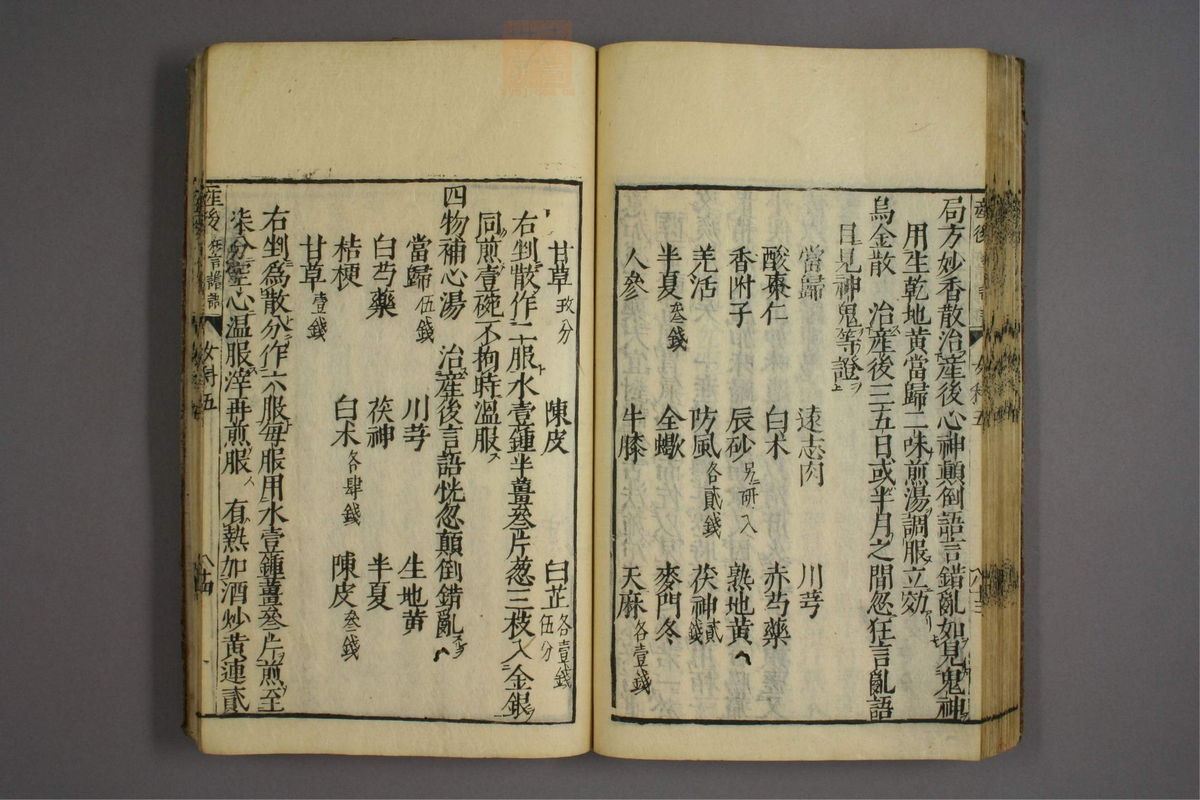 局方妙香散治産後心神顛倒語言錯亂如見鬼神
用生乾地黄當歸二味煎湯調服立効
烏金散　治産後三五日或半月之間忽狂言亂語
目見神鬼等證
當歸　遠志肉　川芎
酸棗仁　白术　赤芍藥
香附子　辰砂另研入　熟地黄
羌活　防風各貳錢　茯神貳錢
半夏叁錢　全蠍　麥門冬
人參　牛膝　天麻各壹錢
甘草玖分　陳皮　白芷各壹錢伍分
右剉散作二服水壹鍾半薑叁片葱三枝入金銀
同煎壹碗不拘時溫服
四物補心湯　治産後言語恍忽顛倒錯亂
當歸伍錢　川芎　生地黄
白芍藥　茯神　半夏
桔梗　白术各肆錢　陳皮叁錢
甘草壹錢
右剉為散分作六服每服用水壹鍾薑叁片煎至
柒分空心溫服滓再煎服　有熱加酒炒黄連貳
産後狂言譫語　女科五　八十四